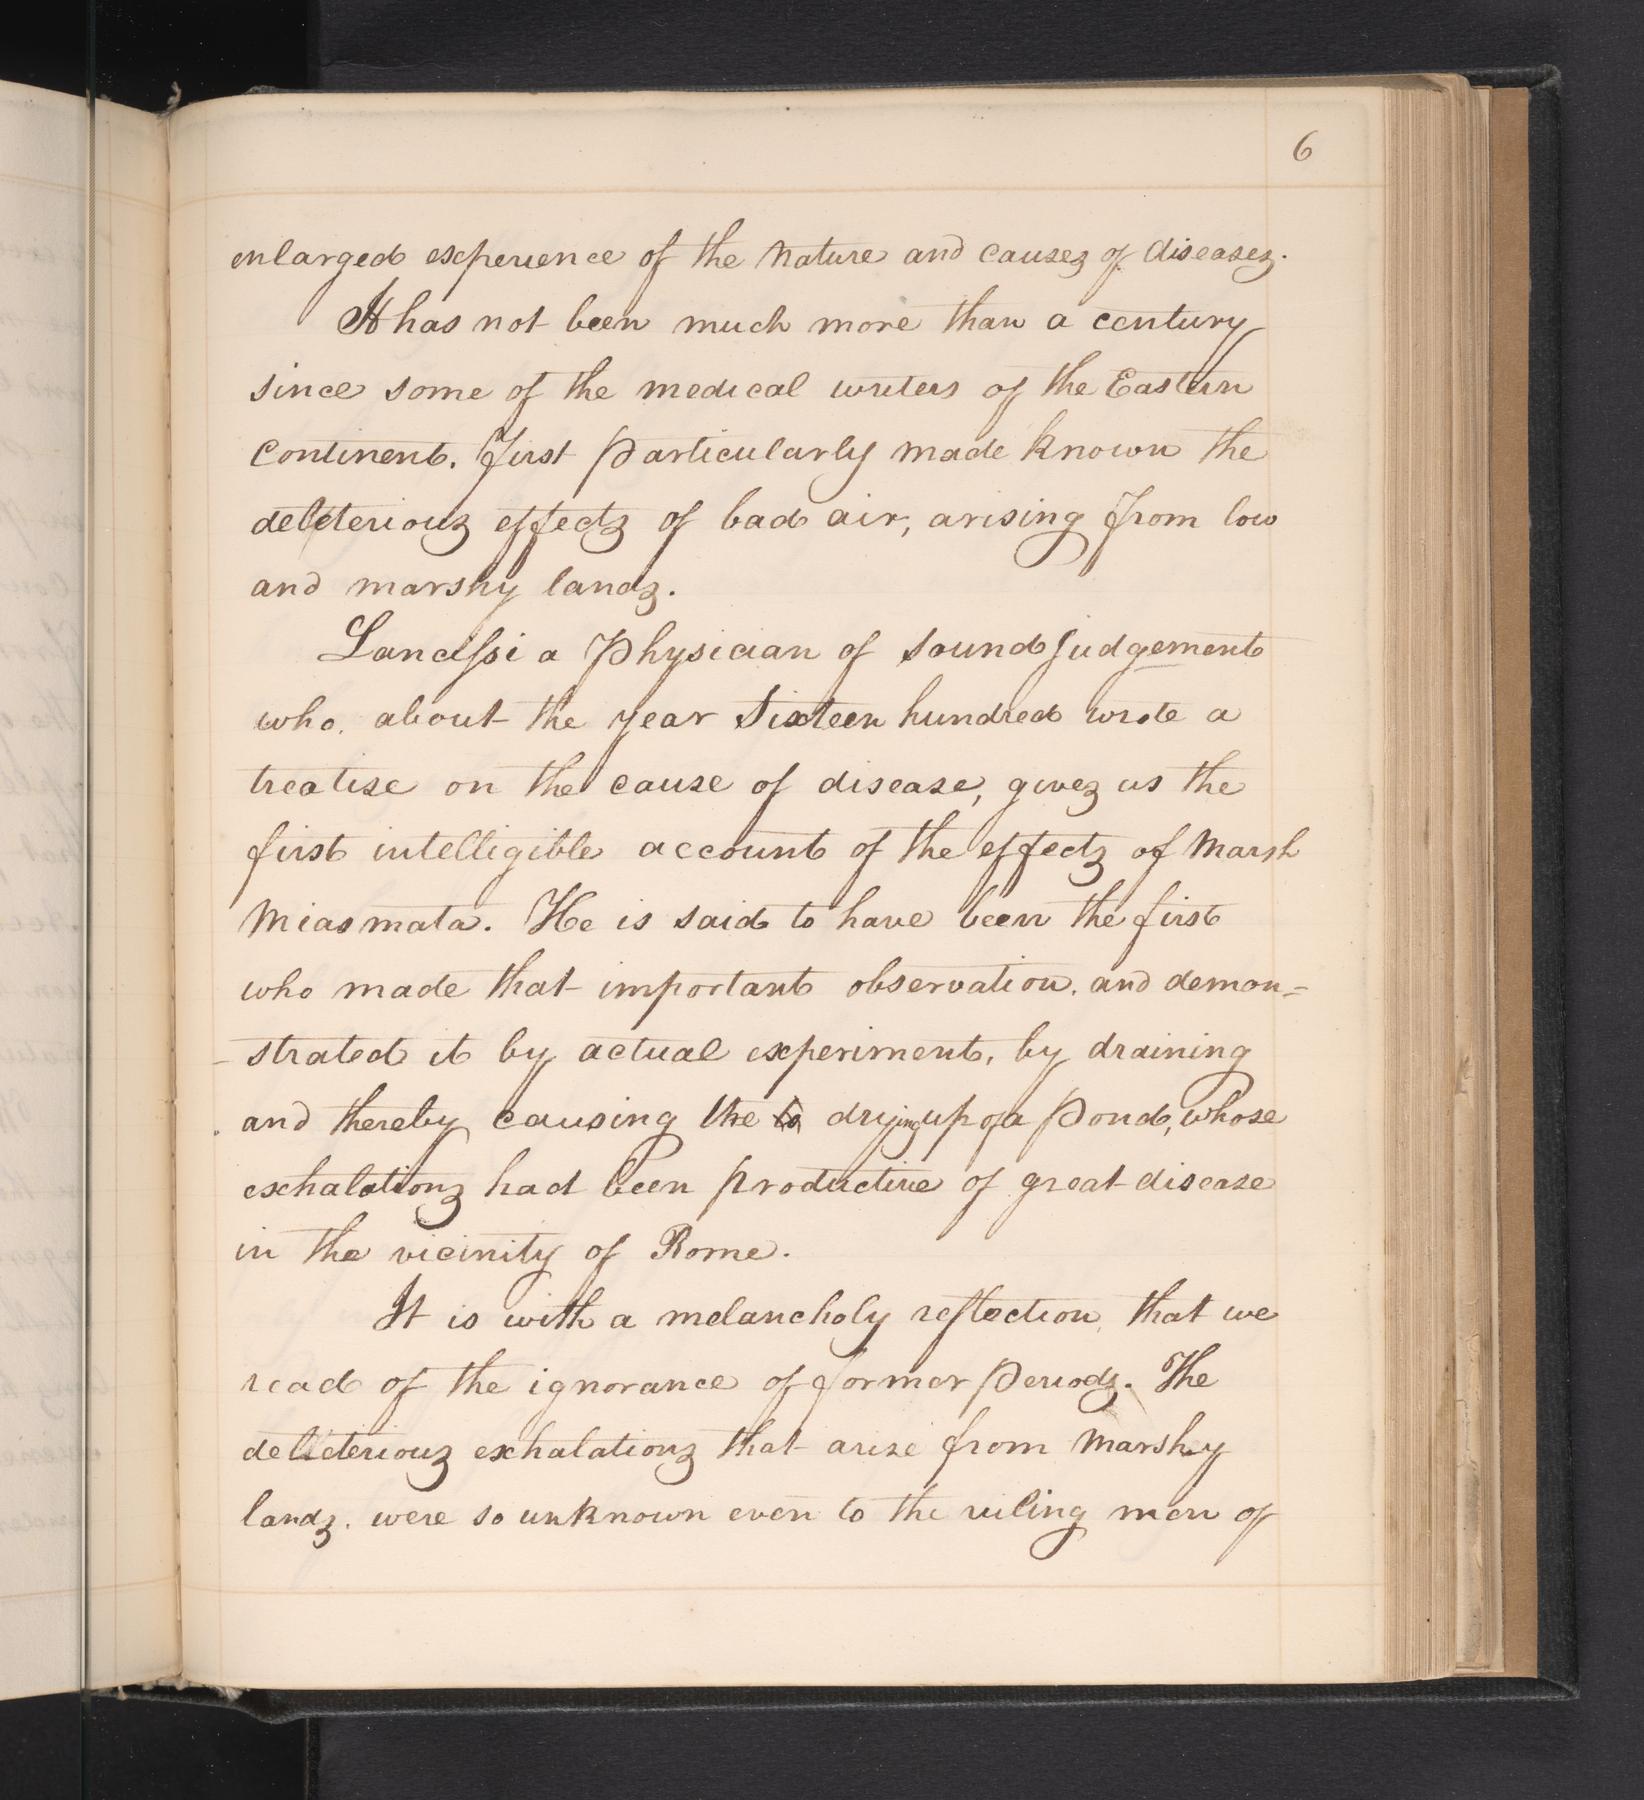 6
enlarged experience of the Nature and causes of diseases.
It has not been much more than a century
since some of the medical writers of the Eastern
Continent. first particularly made known the
deleterious effects of bad air, arising from low
and marshy lands.
Lancissi a Physician of sound judgement
who. about the year Sixteen hundred wrote a
treatise on the cause of disease, gives us the
first intelligible account of the effects of Marsh
Miasmata. He is said to have been the first
who made that important observation. and demon=
-strated it by actual experiment, by draining
and thereby causing the drying up of a Pond, whose
exhalations had been productive of great disease
in the vicinity of Rome.
It is with a melancholy reflection, that we
read of the ignorance of former periods. The
deleterious exhalations that arise from Marshy
lands. were so unknown even to the ruling men of